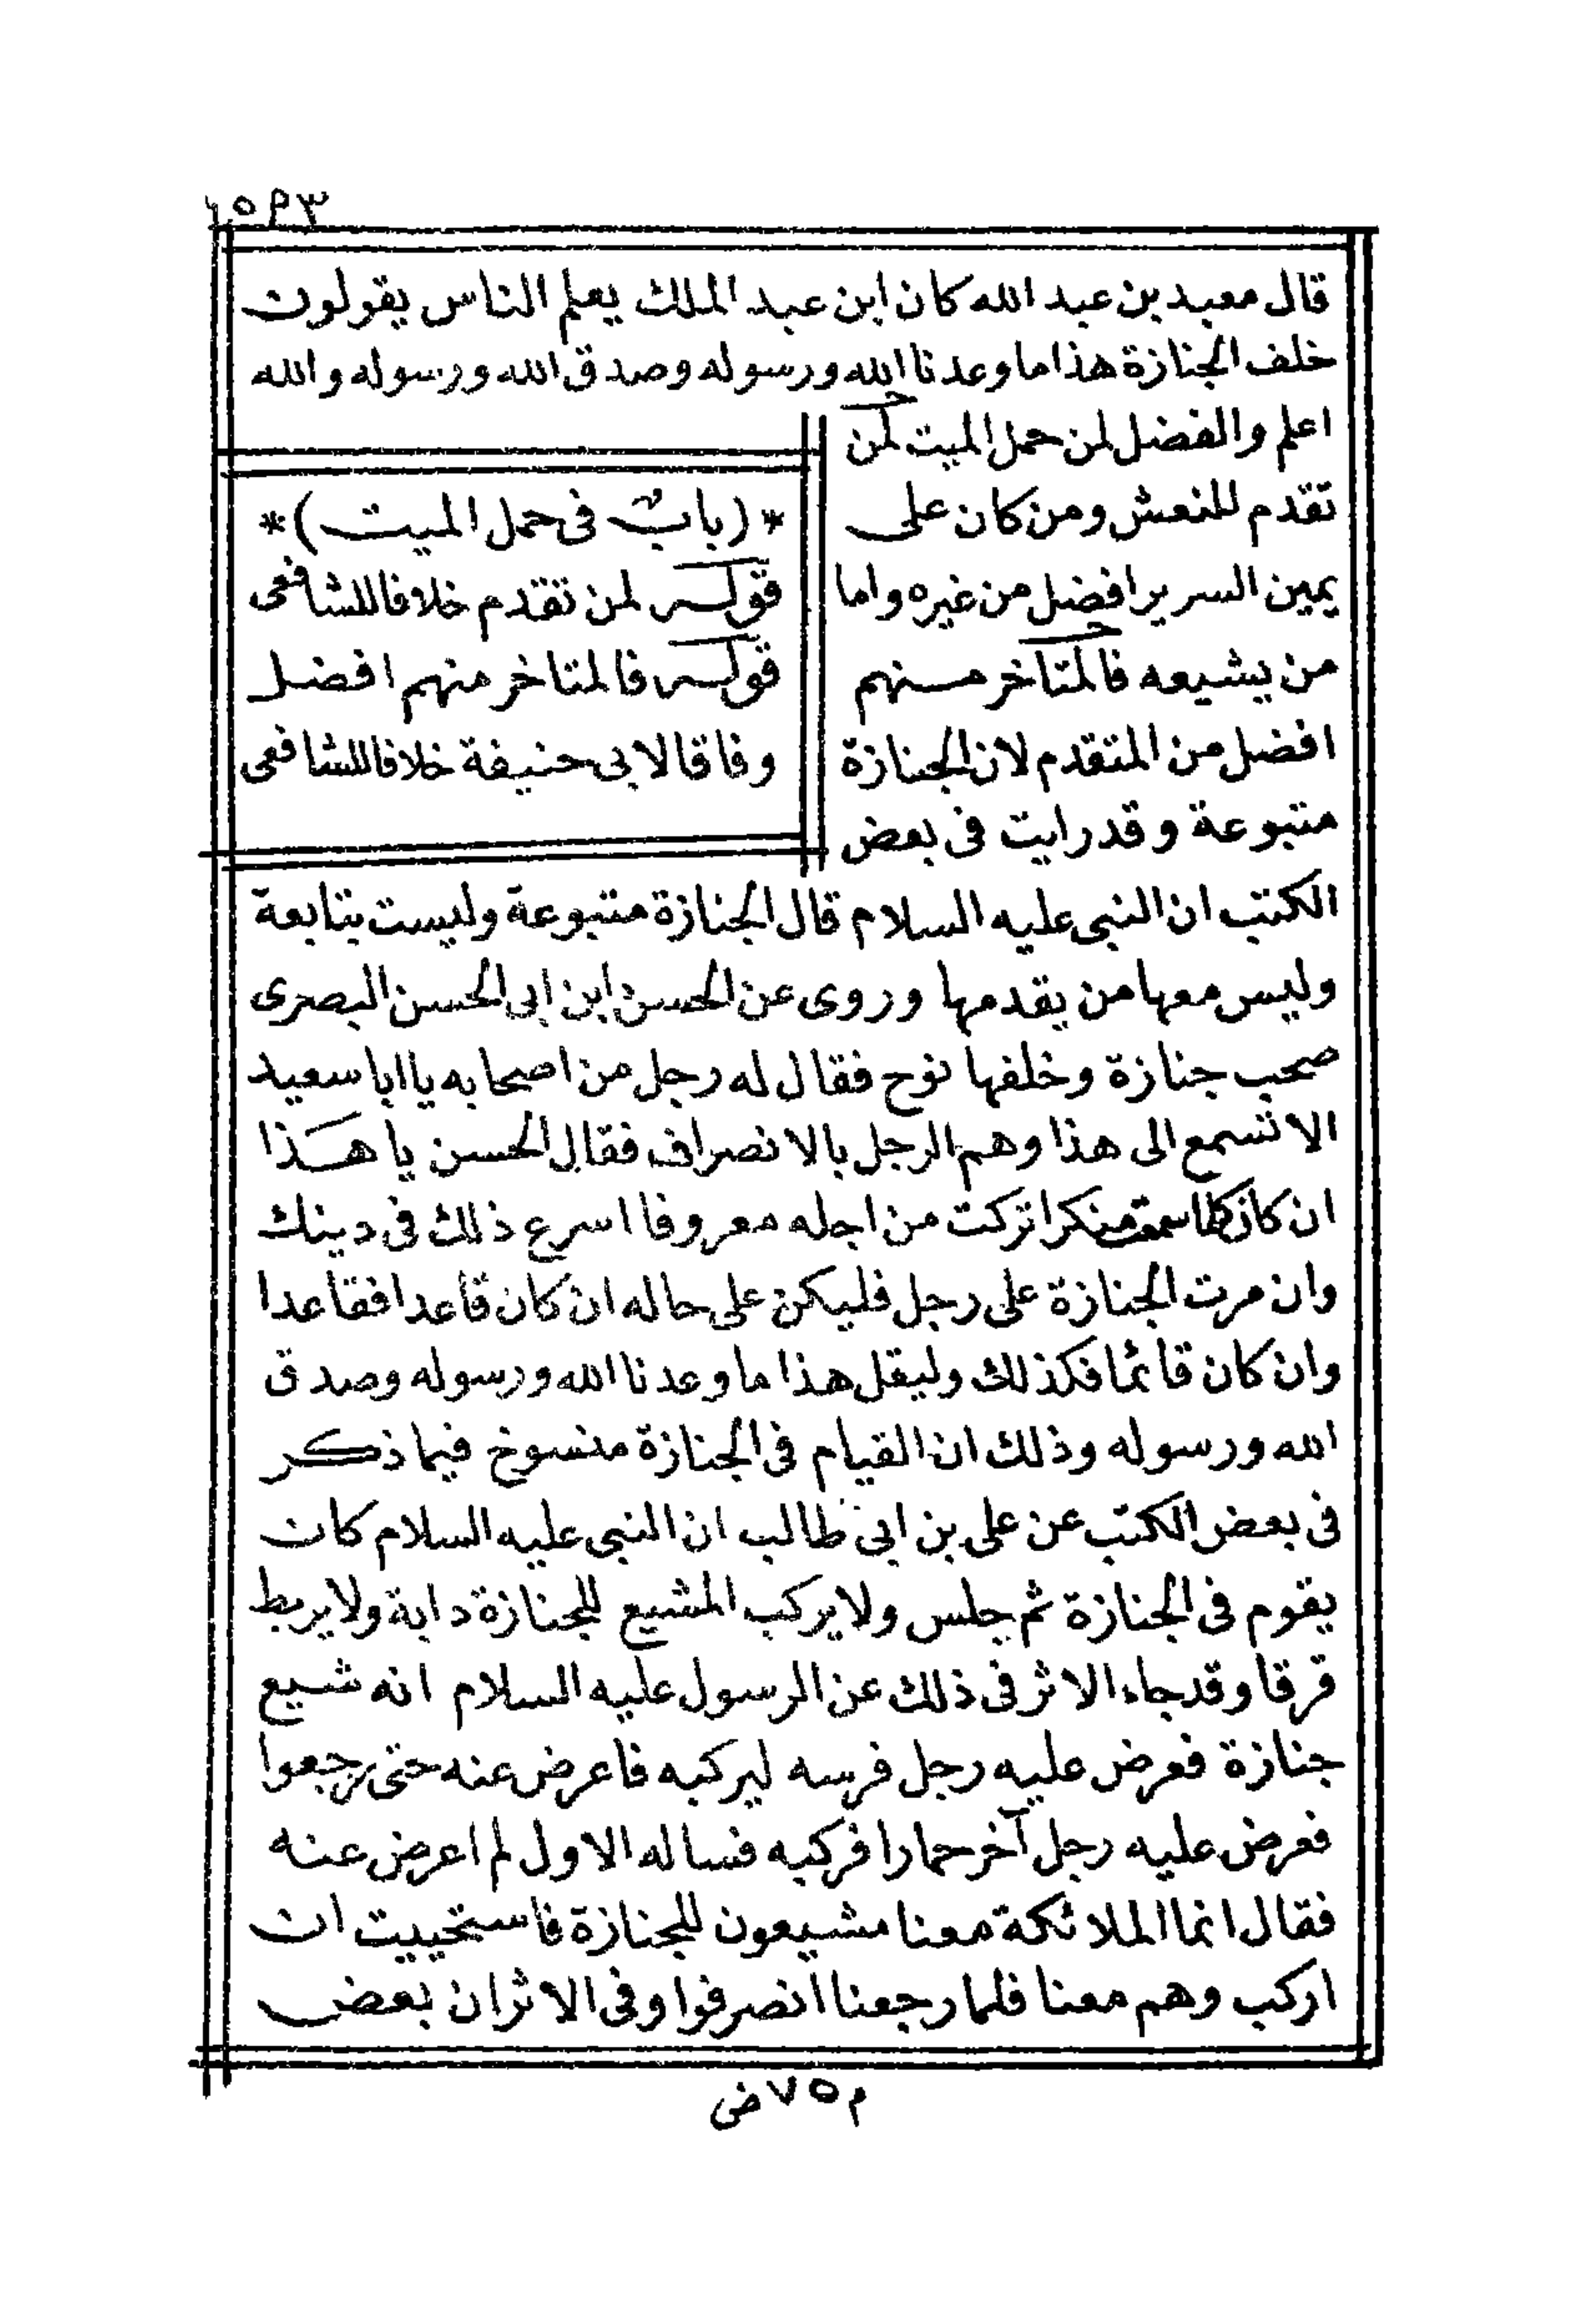 ٥٩٣
قال معبد بن عبد الله كان ابن عبد الملك يعلم الناس يقولون
خلف الجنازة هذا ما وعدنا الله ورسوله وصدق الله ورسوله والله
اعلم والفضل لمن حمل الميت لمن
تقدم للنعش ومن كان على
يمين السرير افضل من غيره واما
من يشيعه فالمتاخر منهم
افضل من المتقدم لان الجنازة
متبوعة وقد رايت فى بعض
*(باب فى حمل الميت)*
قوله لمن تقدم خلافا للشافعى
قوله فالمتاخر منهم افضل
وفاقا لابى حنيفة خلافا للشافعى
الكتب ان النبى عليه السلام قال الجنازة متبوعة وليست بتابعة
وليس معها من يقدمها وروى عن الحسن ابن ابى الحسن البصرى
صحب جنازة وخلفها نوح فقال له رجل من اصحابه يا ابا سعيد
الا تسمع الى هذا وهم الرجل بالانصراف فقال الحسن يا هذا
ان كان كلما سمعت منكرا تركت من اجله معروفا اسرع ذلك فى دينك
وان مرت الجنازة على رجل فليكن على حاله ان كان قاعدا فقاعدا
وان كان قائما فكذلك وليقل هذا ما وعدنا الله ورسوله وصدق
الله ورسوله وذلك ان القيام فى الجنازة منسوخ فيما ذكر
فى بعض الكتب عن على بن ابى طالب ان النبى عليه السلام كان
يقوم فى الجنازة ثم جلس ولا يركب المشيع للجنازة دابة ولا يربط
قرقا وقد جاء الاثر فى ذلك عن الرسول عليه السلام انه شيع
جنازة فعرض عليه رجل فرسه ليركبه فاعرض عنه حتى رجعوا
فعرض عليه رجل آخر حمارا فركبه فساله الاول لم اعرض عنه
فقال انما الملائكة معنا مشيعون للجنازة فاستحييت ان
اركب وهم معنا فلما رجعنا انصرفوا وفى الاثر ان بعض
م ٧٥ ض